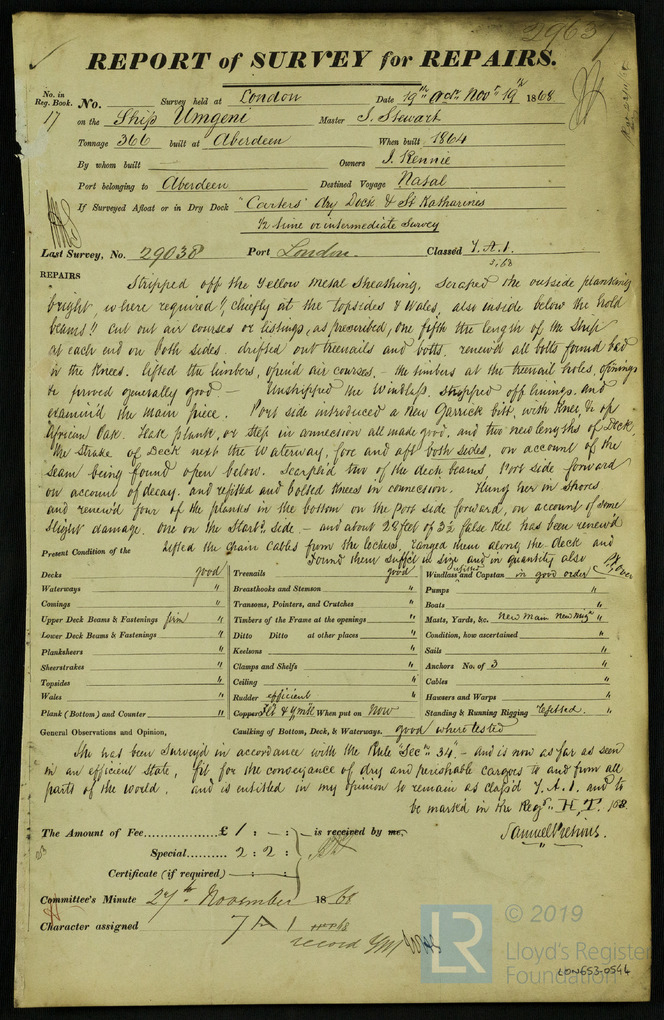 2963
REPORT of SURVEY for REPAIRS.
No. in Reg. Book. No. Survey held at London Date 19th Octr Novr 19th 1868
17 on the Ship Umgeni Master J. Stewart
Tonnage 366 built at Aberdeen When built 1864
By whom built — Owners J. Rennie
Port belonging to Aberdeen Destined Voyage Natal
If Surveyed Afloat or in Dry Dock "Carters" dry Dock & St Katharines
½ time or intermediate Survey
Last Survey, No. 29038 Port London. Classed 7. A. 1.
2,68
REPAIRS Stripped off the Yellow metal Sheathing, Scraped the outside planking
bright, where required, chiefly at the topsides & Wales, also inside below the hold
beams!! cut out air courses or listings, as prescribed, one fifth the length of the Ship
at each end on both sides. drifted out treenails and bolts. renew'd all bolts found bad
in the Knees. lifted the limbers, open'd air courses. — the timbers at the treenail holes & openings
proved generally good — Unshipped the Windlass, stripped off linings, and
examin'd the main piece. Port side introduced a new Carrick bitt, with Knee, &c of
African Oak. Teak plank, or Step in connection all made good, and two new lengths of Deck
The Strake of Deck next the Waterway, fore and aft both sides, on account of the
Seam being found open below. Scarph'd two of the deck beams, Port side forward
on account of decay, and refitted and bolted Knees in connection. Hung her in Shores
and renew'd four of the planks in the bottom on the Port side forward, on account of some
slight damage. One on the Starbd side — and about 28 feet of 3½ false Keel has been renew'd
lifted the chain cables from the lockers, ranged them along the deck and
found them suffict in size and in quantity also
Pr over
Present Condition of the
Decks good
Waterways "
Comings "
Upper Deck Beams & Fastenings firm "
Lower Deck Beams & Fastenings "
Planksheers "
Sheerstrakes "
Topsides "
Wales "
Plank (Bottom) and Counter "
Treenails good
Breasthooks and Stemson "
Transoms, Pointers, and Crutches "
Timbers of the Frame at the openings "
Ditto Ditto at other places "
Keelsons "
Clamps and Shelfs "
Ceiling "
Rudder efficient "
Copper Flt & YmK When put on Now
Windlass and Capstan refitted in good order
Pumps "
Boats "
Masts, Yards, &c. New main new Miz "
Condition, how ascertained "
Sails "
Anchors No. of 3 "
Cables "
Hawsers and Warps "
Standing & Running Rigging refitted. "
General Observations and Opinion, Caulking of Bottom, Deck, & Waterways. good where tested
She has been Survey'd in accordance with the Rule "Secn 34" — and is now as far as seen
in an efficient state, fit for the conveyance of dry and perishable cargoes to and from all
parts of the world. and is entitled in my opinion to remain as class'd 7. A. 1. and to
be marked in the Regr. H. T. 68.
Samuel Pretious.
The Amount of Fee £ 1 : — : — is received by me,
Special 2 : 2 :
Certificate (if required) — : — :
Committee's Minute 27th November 1868
Character assigned 7 A 1
record Y/M
LR © 2019
Lloyd's Register
Foundation
LON653-0544